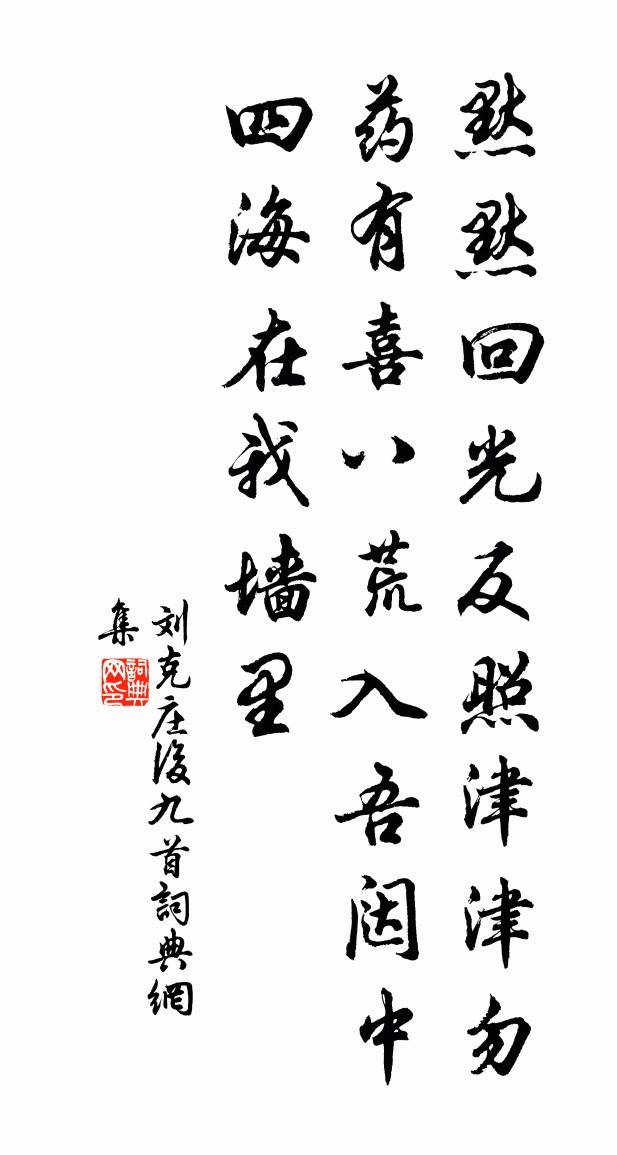 默默回光反照津津勿
药有喜八荒入吾闼中
四海在我墙里
刘克庄後九首詞典網
集
詞典
网印